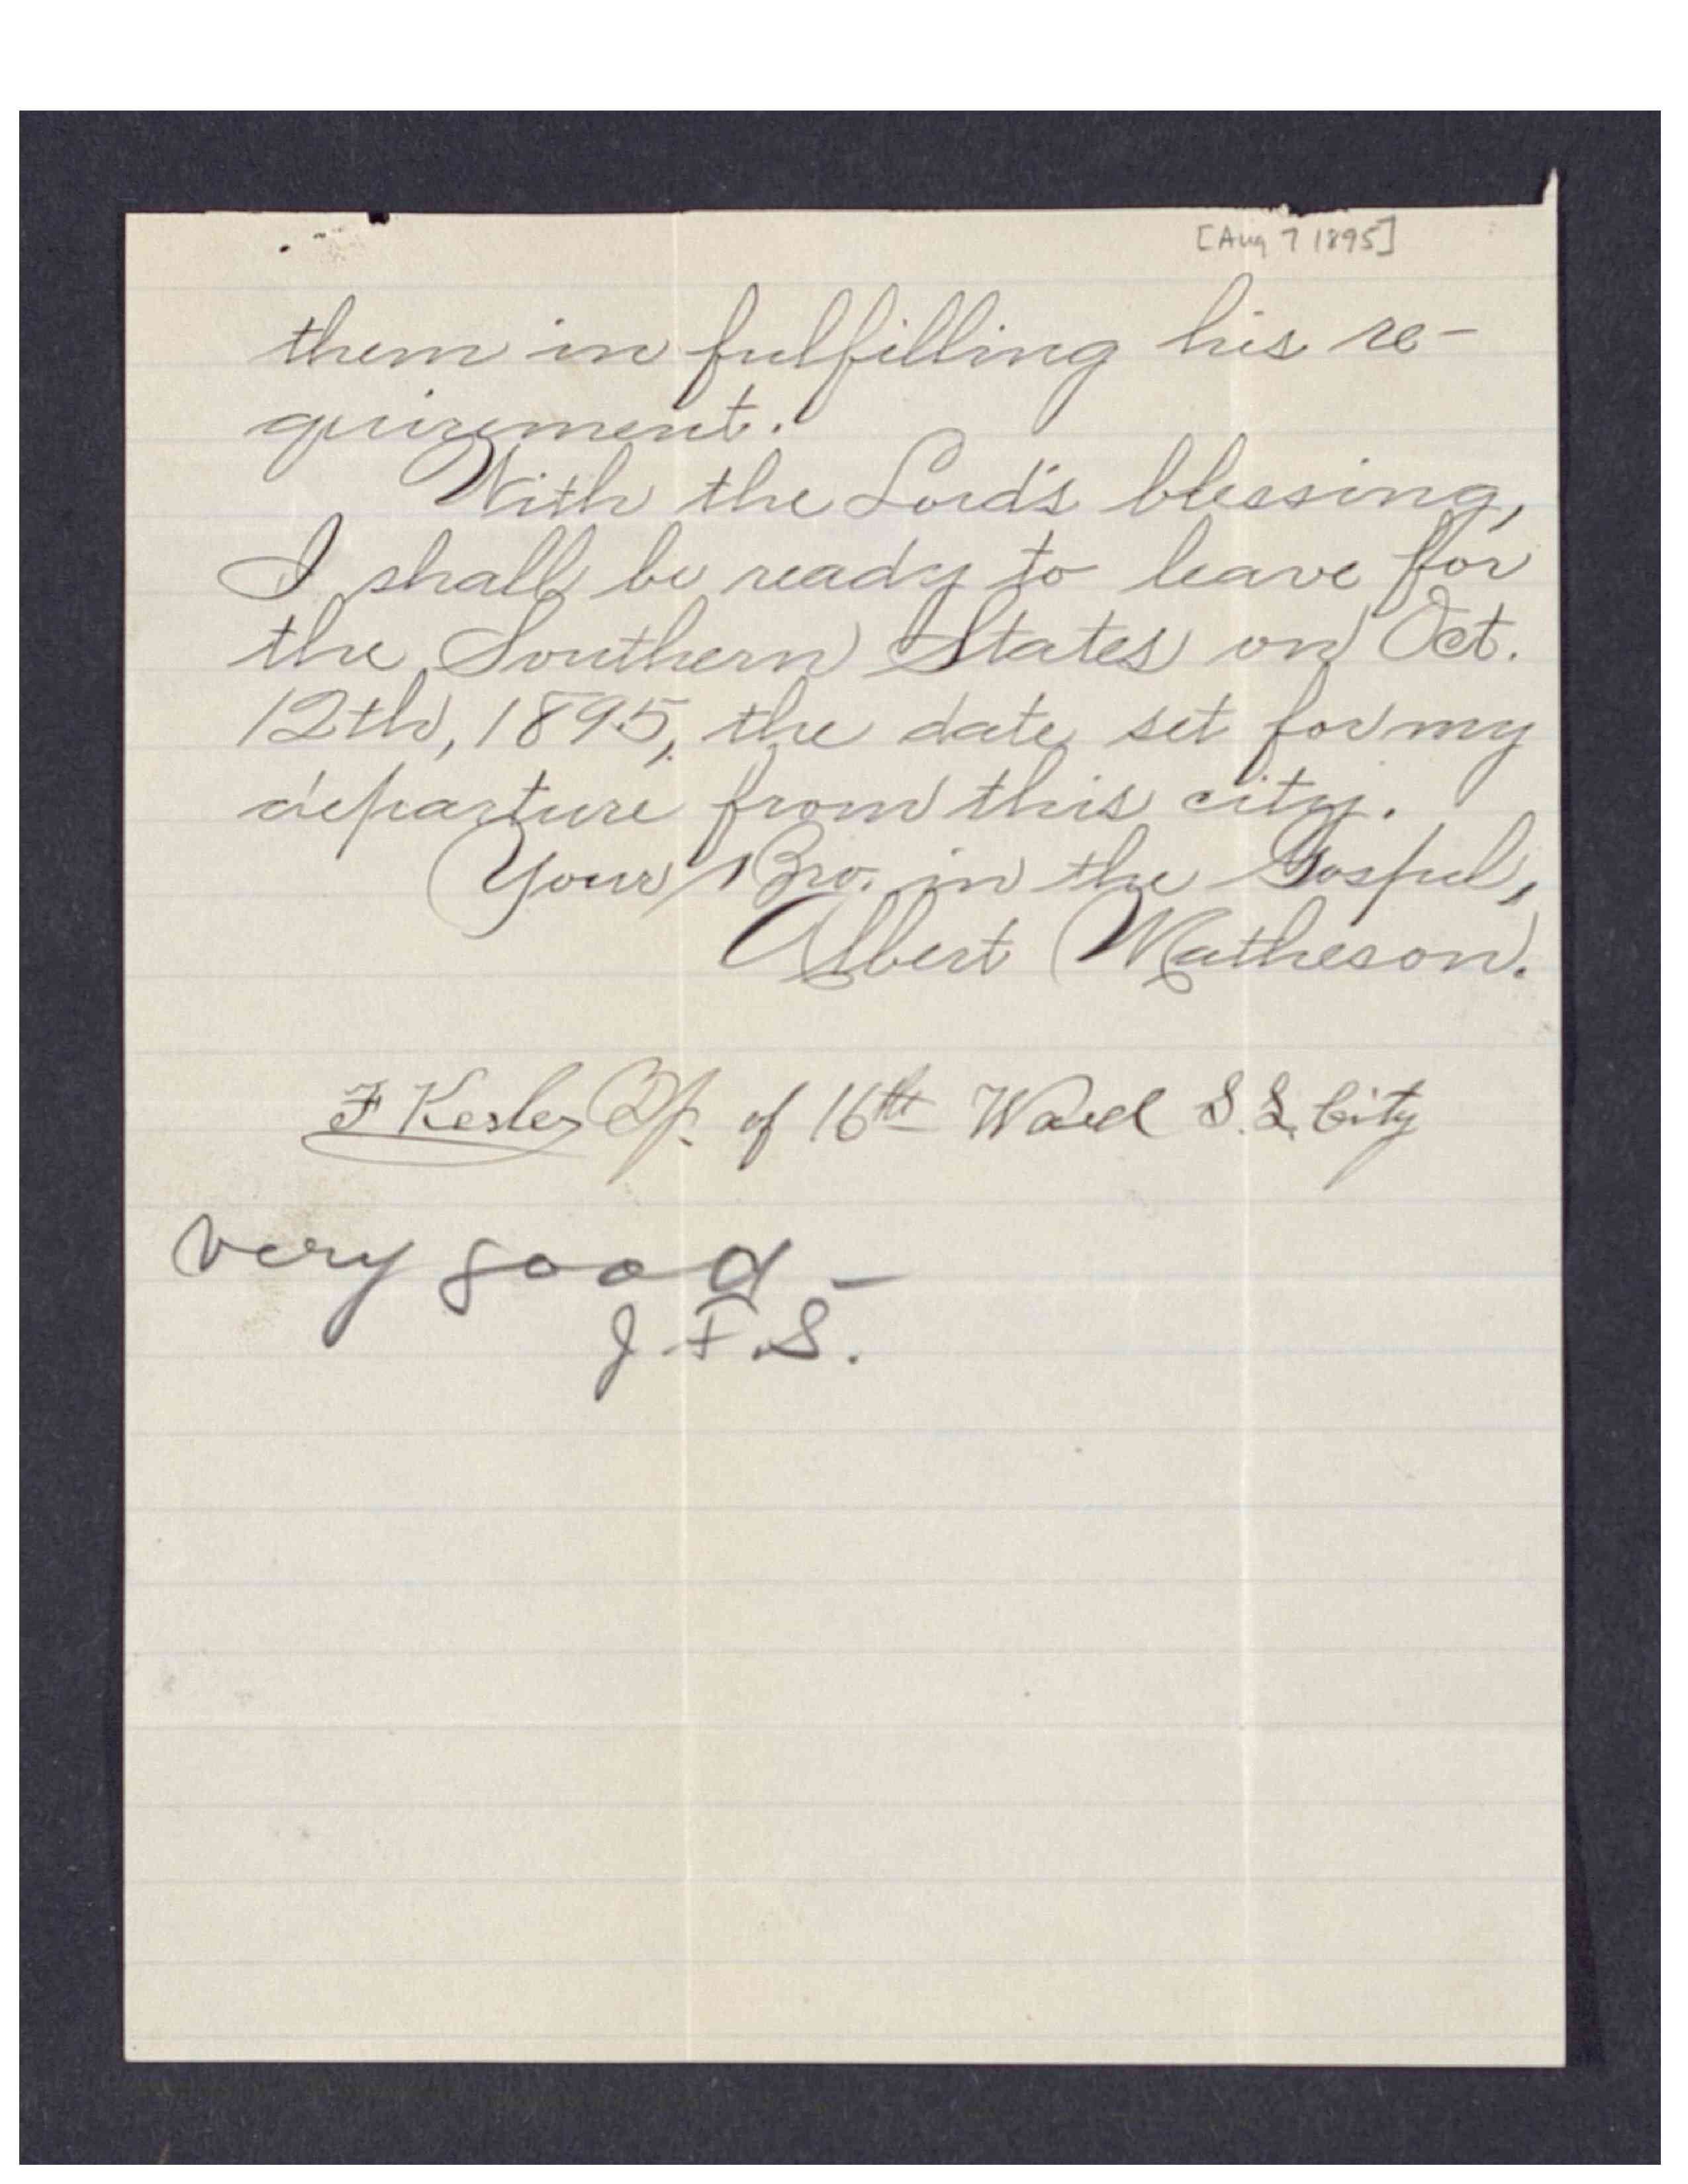 [Aug 7 1895]
them in fulfilling his re-
quirement.
With the Lord's blessing,
I shall be ready to leave for
the Southern States on Oct.
12th, 1895, the date set for my
departure from this city.
Your Bro. in the Gospel,
Albert Matheson.
F Kesler Bp. of 16th Ward S. L. City
very good -
J F. S.